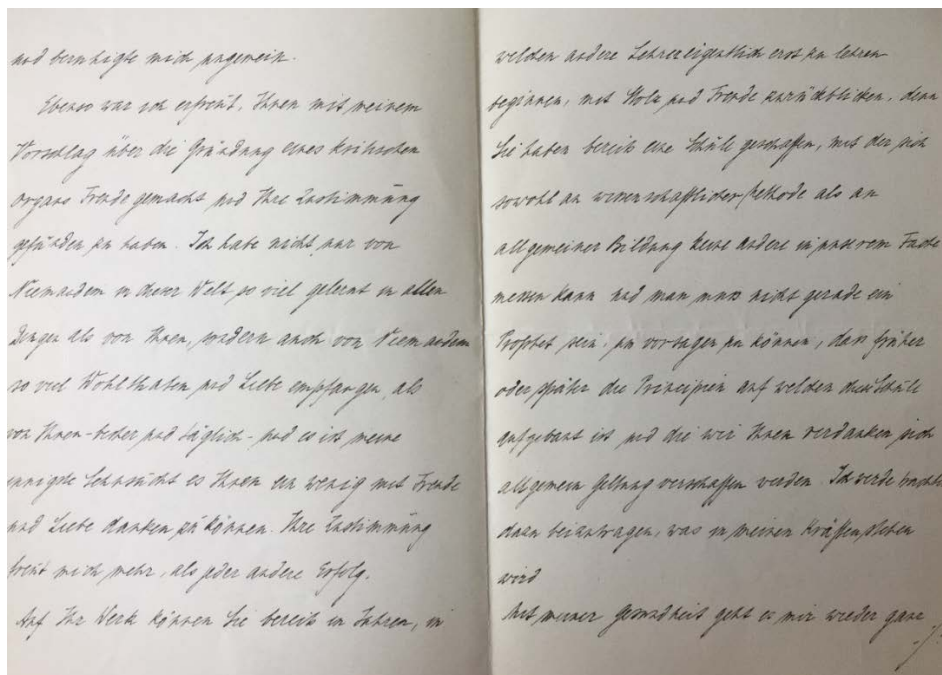 und beruhigte mich ungemein.
Ebenso war ich erfreut, Ihnen mit meinem
Vorschlag über die Gründung eines kritischen
Organs Freude gemacht und Ihre Zustimmung
gefunden zu haben. Ich habe nicht nur von
Niemandem in dieser Welt so viel gelernt in allen
Dingen als von Ihnen, sondern auch von Niemandem
so viel Wohlthaten und Liebe empfangen, als
von Ihnen - bisher und täglich - und es ist meine
innigste Sehnsucht es Ihnen ein wenig mit Freude
und Liebe danken zu können. Ihre Zustimmung
freut mich mehr, als jeder andere Erfolg.
Auf Ihr Werk können Sie bereits in Jahren, in
welchen andere Lehrer eigentlich erst zu lehren
beginnen, mit Stolz und Freude zurückblicken, denn
Sie haben bereits eine Schule geschaffen, mit der sich
sowohl an wissenschaftlicher Methode als an
allgemeiner Bildung keine andere in unserem Fache
messen kann und man muss nicht gerade ein
Prophet sein, um vorsagen zu können, dass früher
oder später die Principien auf welchen diese Schule
aufgebaut ist und die wir Ihnen verdanken sich
allgemein Geltung verschaffen werden. Ich werde
dazu beizutragen, was in meinen Kräften stehen
wird
Mit meiner Gesundheit geht es mir wieder ganz